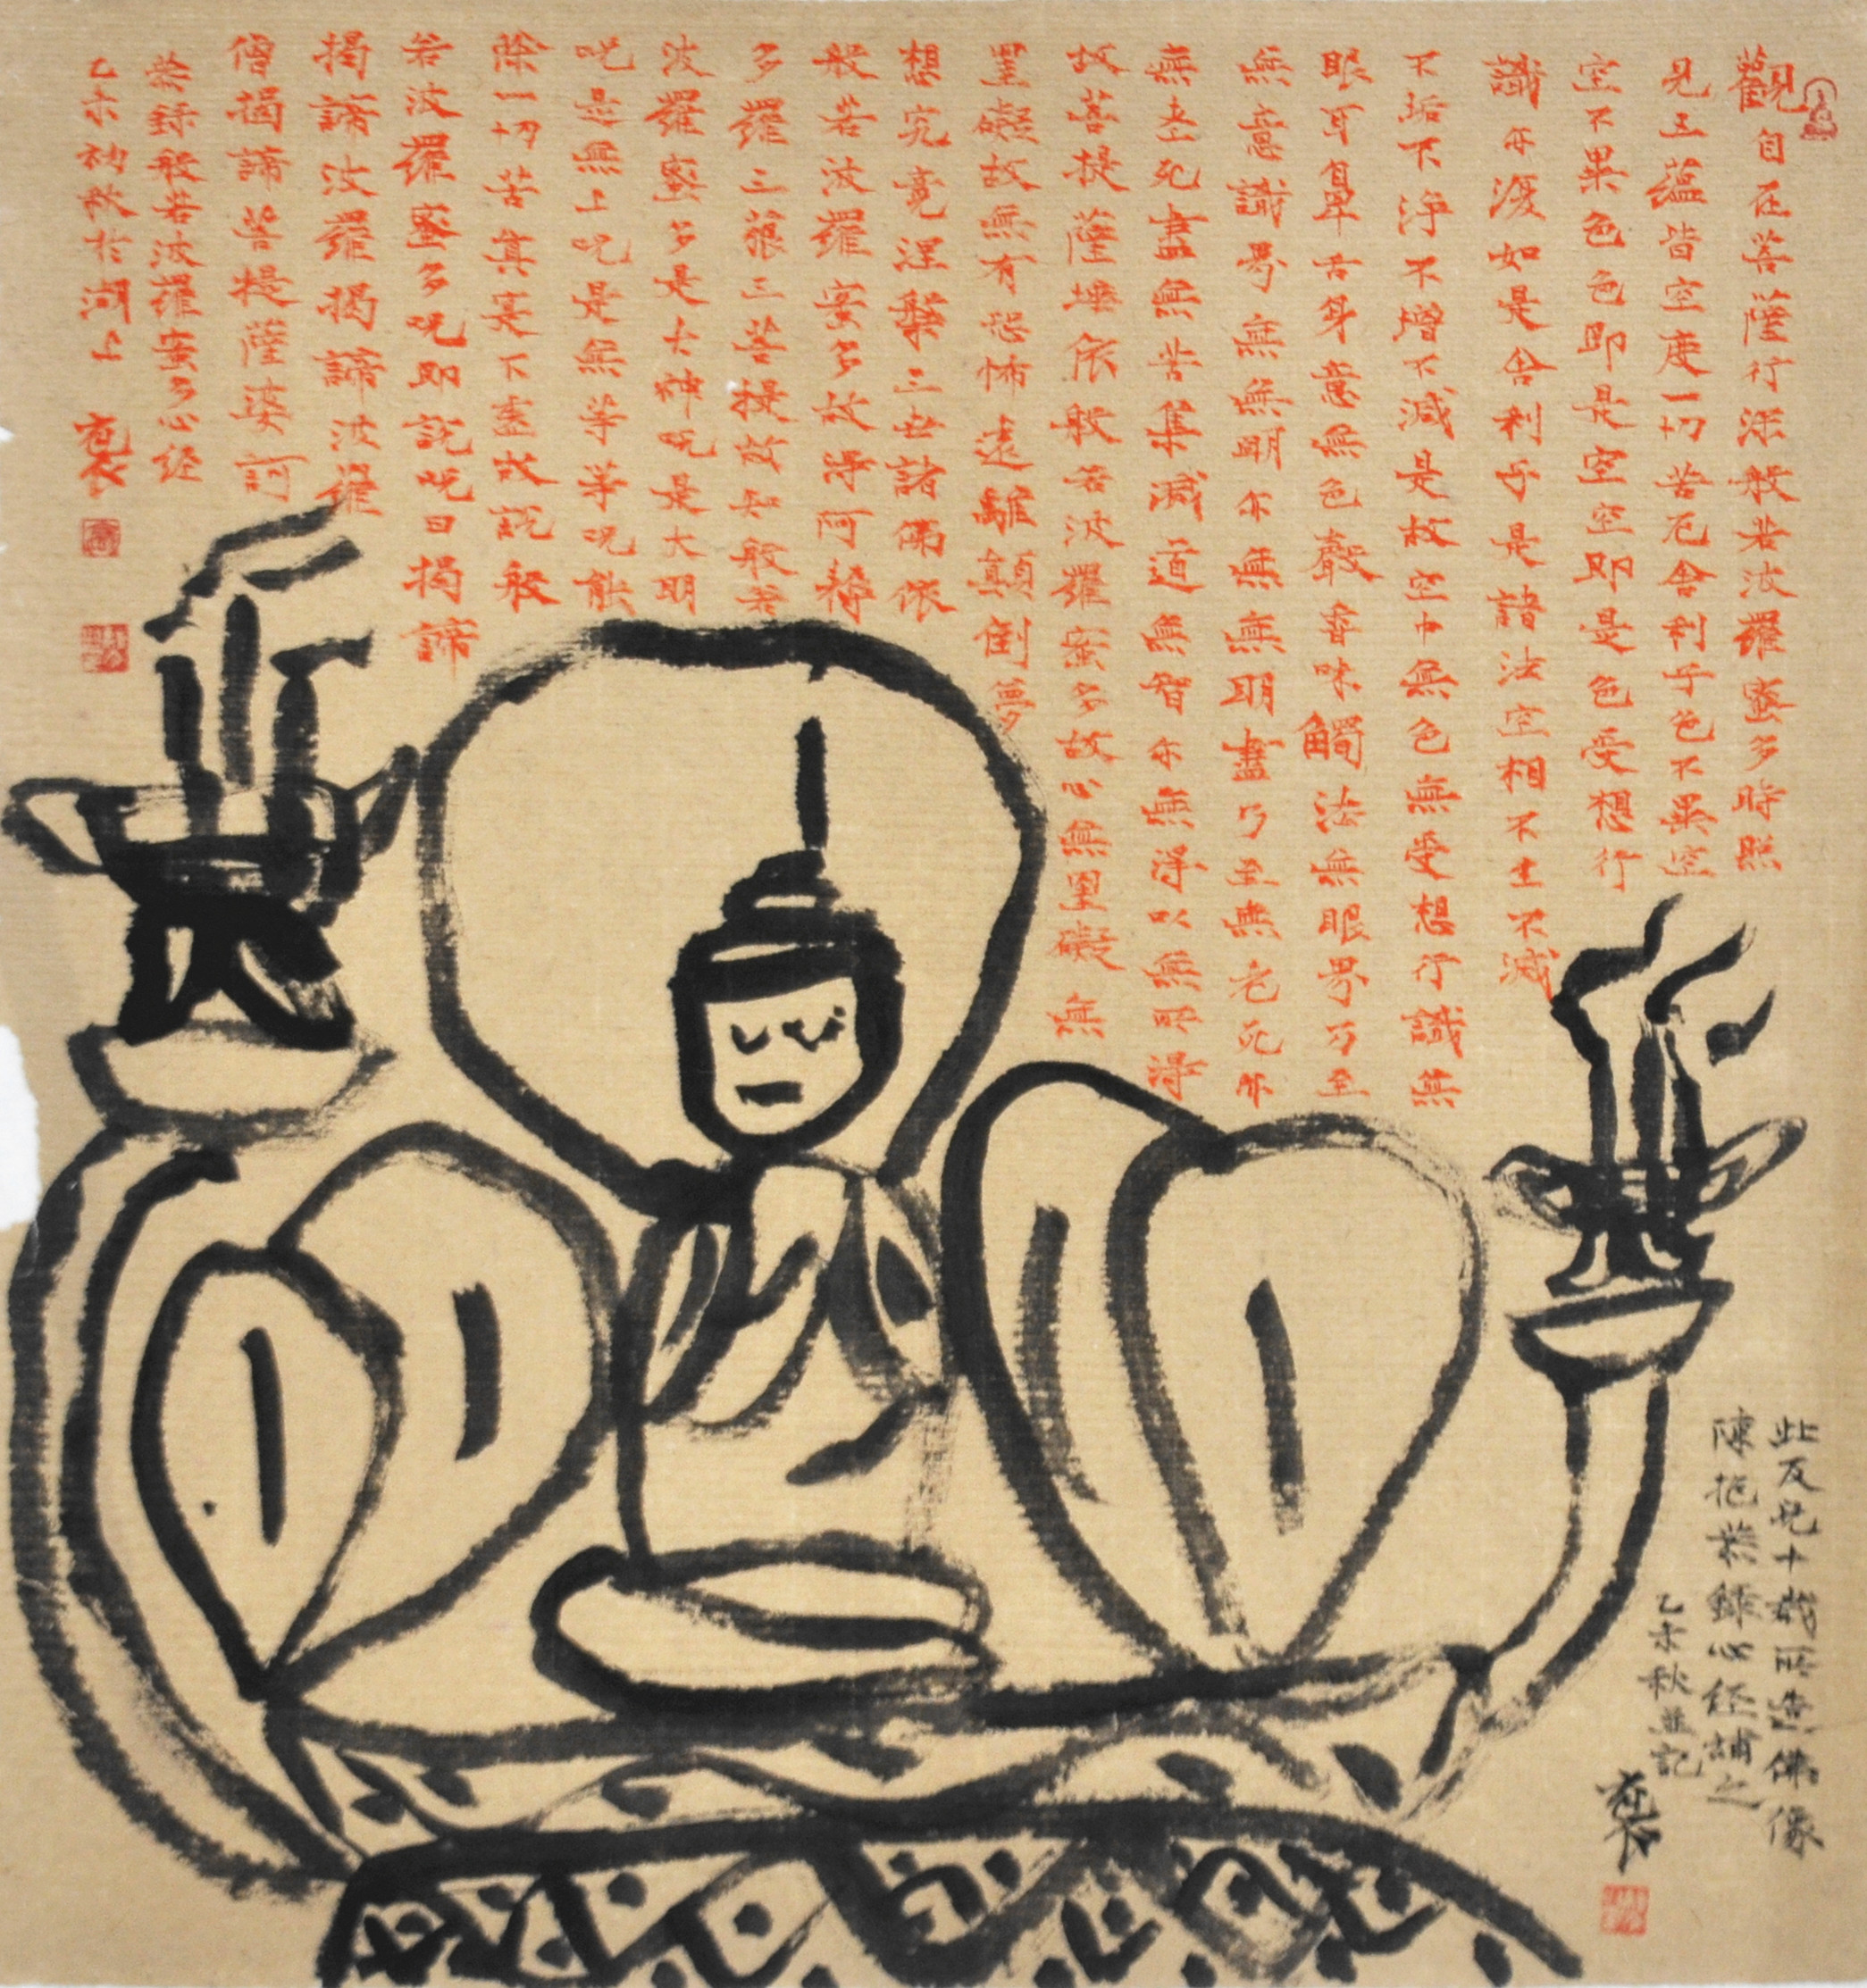 觀自在菩薩行深般若波羅蜜多時照
見五蘊皆空度一切苦厄舍利子色不異空
空不異色色即是空空即是色受想行
識亦復如是舍利子是諸法空相不生不滅
不垢不淨不增不減是故空中無色無受想行識無
眼耳鼻舌身意無色聲香味觸法無眼界乃至
無意識界無無明亦無無明盡乃至無老死亦
無老死盡無苦集滅道無智亦無得以無所得
故菩提薩埵依般若波羅蜜多故心無罣礙無
罣礙故無有恐怖遠離顛倒夢
想究竟涅槃三世諸佛依
般若波羅蜜多故得阿耨
多羅三藐三菩提故知般若
波羅蜜多是大神咒是大明
咒是無上咒是無等等咒能
除一切苦真實不虛故說般
若波羅蜜多咒即說咒曰揭諦
揭諦波羅揭諦波羅
僧揭諦菩提薩婆訶
恭錄般若波羅蜜多心經
乙未初秋於湖上
此反兒十歲所畫佛像
陳抱 錄心經補之
乙未秋並記